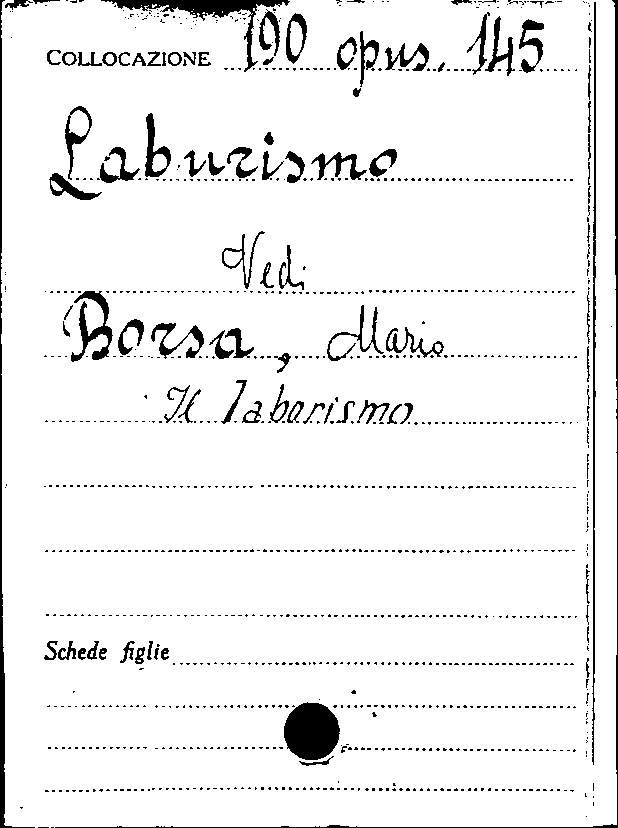 COLLOCAZIONE 190 opus. 145
Laburismo
Vedi
Borsa, Mario
Il laborismo
Schede figlie